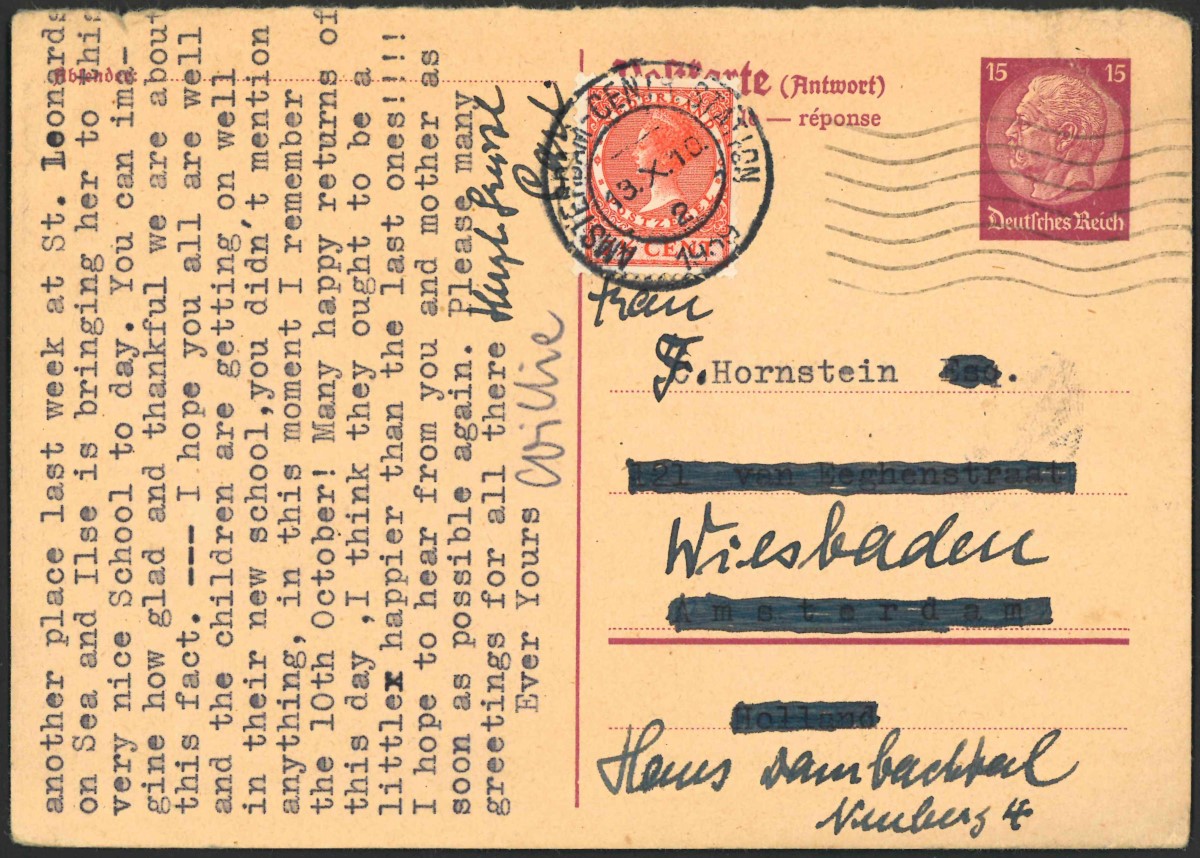 another place last week at St. Leonards
on Sea and Ilse is bringing her to this
very nice School to day. You can ima-
gine how glad and thankful we are about
this fact. --- I hope you all are well
and the children are getting on well
in their new school,you didn't mention
anything, in this moment I remember
the 10th October! Many happy returns of
this day ,I think they ought to be a
littler happier than the last ones!!!!
I hope to hear from you and mother as
soon as possible again. Please many
greetings for all there
Ever Yours
Absender:
Postkarte (Antwort)
réponse
15 15
Deutsches Reich
AMSTERDAM-CENTR. STATION
13.X.10
CENT
Frau
F.Hornstein Esq.
121 van Eeghenstraat
Wiesbaden
Amsterdam
Holland
Haus Dambachtal
Neuberg 4